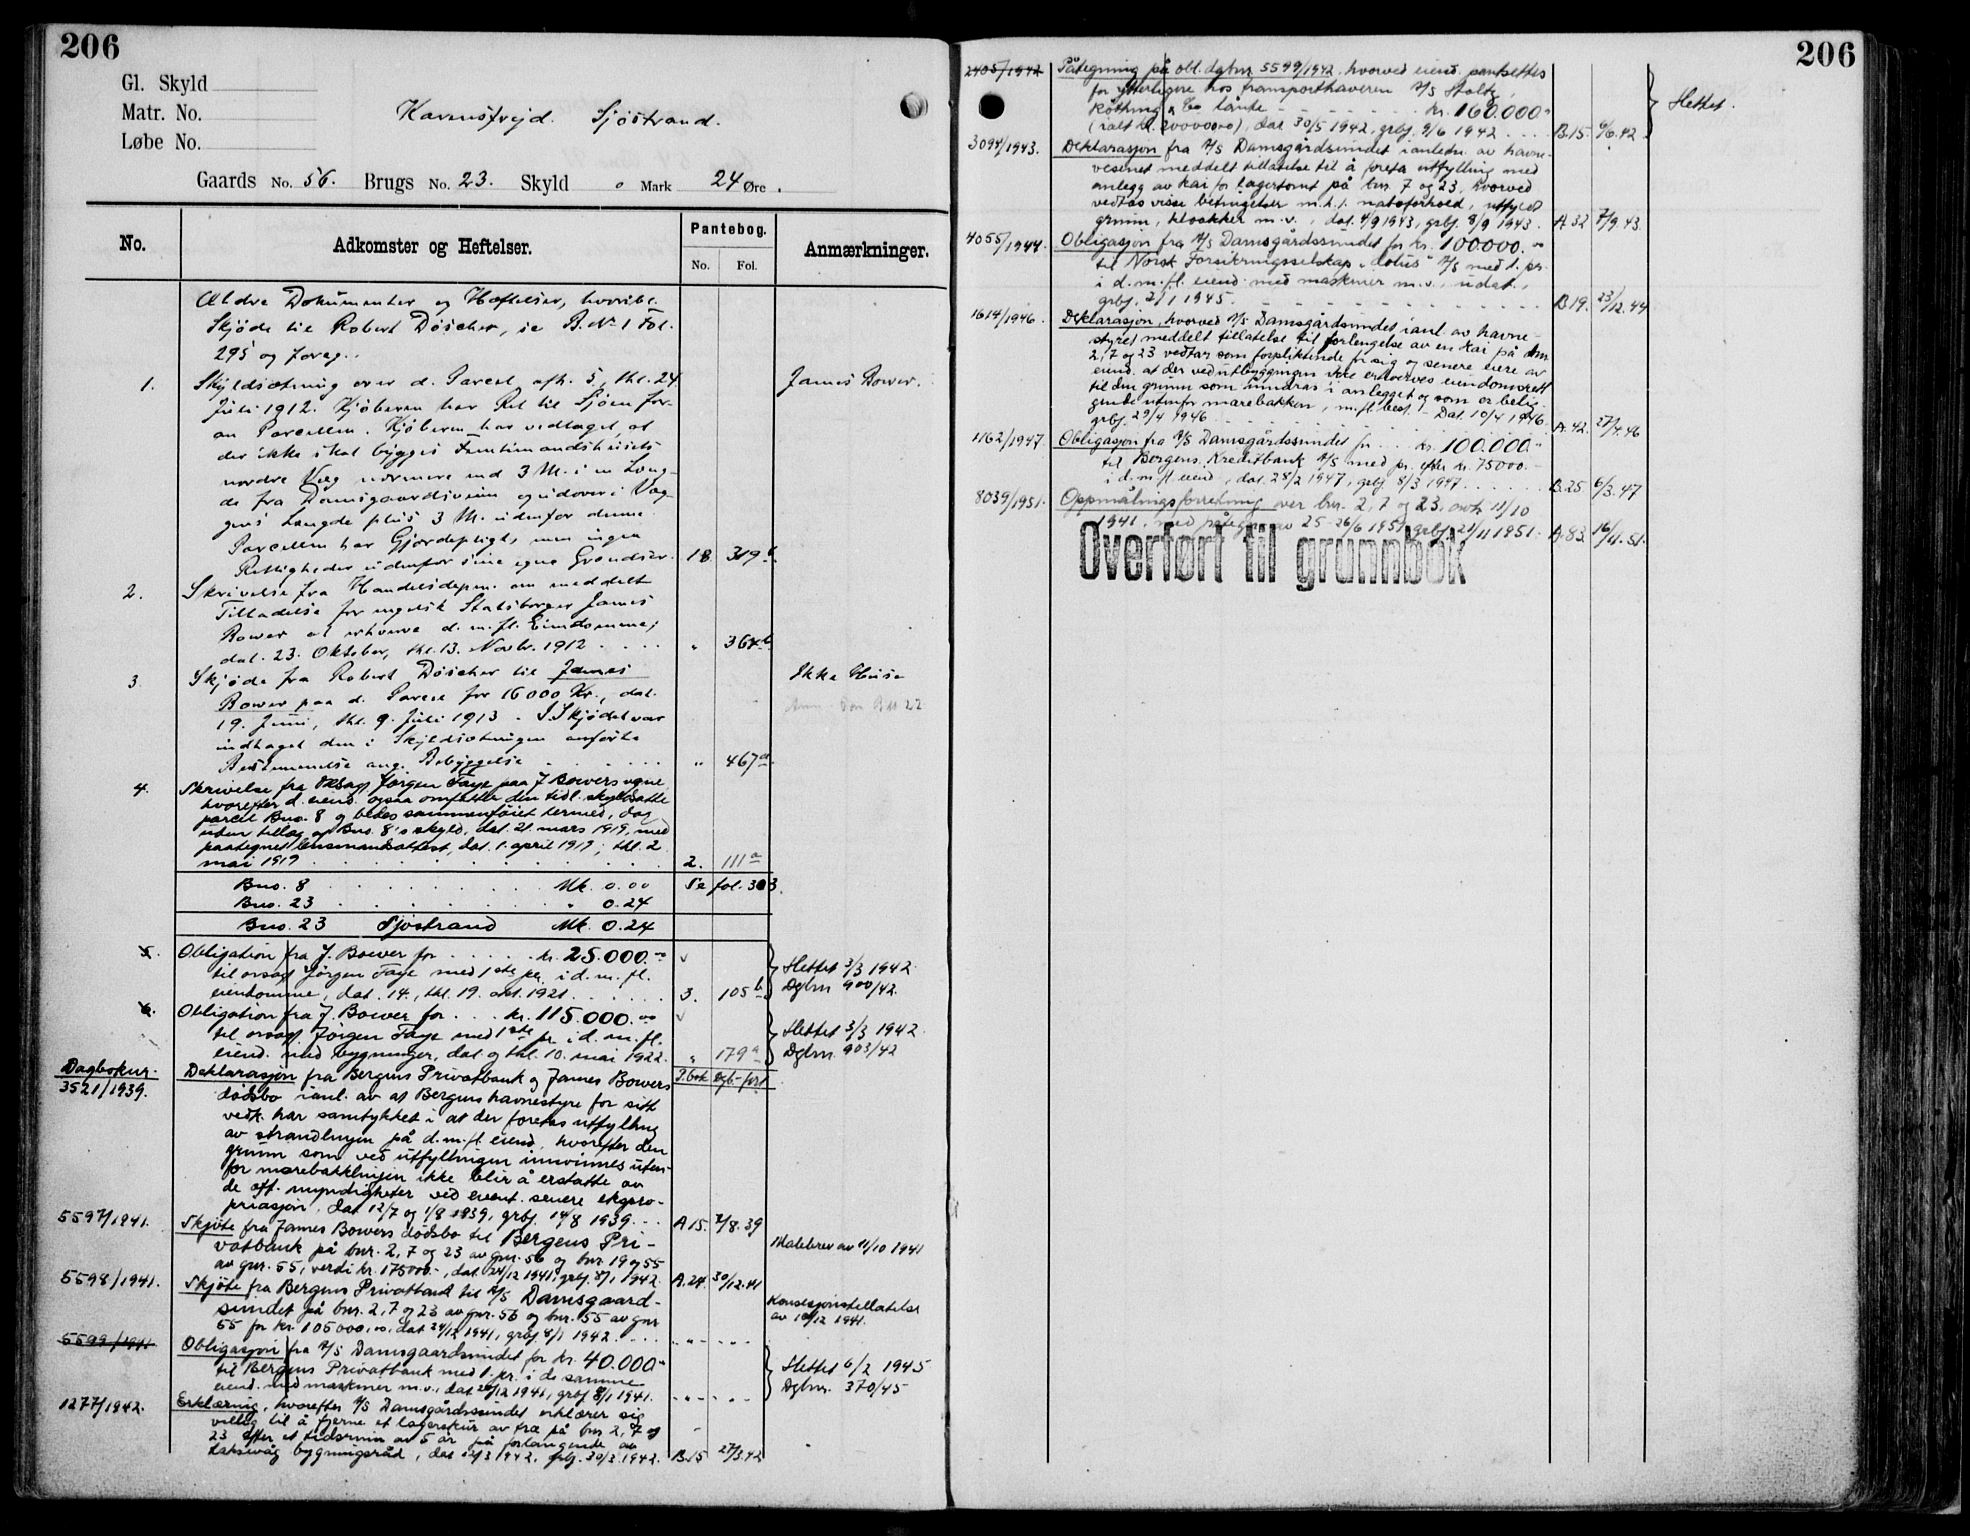 206
Gl. Skyld
Matr. No.
Løbe No.
Sjöstrand.
Gaards No. 56. Brugs No. 23. Skyld 0 Mark 24 Øre.
No.
Adkomster og Heftelser.
Pantebog.
No. Fol.
Anmærkninger.
Ældre Dokumenter og Hæftelser, hvoribl.
Skjøde til Robert Döscher, se B. No 1 Fol.
295 og foreg.
1. Skyldsætning over d. Parcel, afh. 5, thl. 24 James Bower.
Juli 1912. Kjöberen har Ret til Sjöen for-
an Parcellen. Kjöberen har vedtaget, at
der ikke skal bygges
nordre Væg nærmere end 3 M. i en Læng-
de fra Damsgaardsveien og udover i Væg-
gens Længde plus 3 M. udenfor denne.
Parcellen har Gjerdepligt, men ingen
Rettigheder udenfor sine egne Grændser. 18 319 b
2. Skrivelse fra Handelsdepm. om meddelt
Tilladelse for engelsk Statsborger James
Bower at erhverve d. m. fl. Eiendomme,
dat. 23. Oktober, thl. 13. Novbr. 1912 . . . . " 364 b
3. Skjøde fra Robert Döscher til James Ikke Huse
Bower paa d. Parcel for 16000 Kr., dat.
19. Juni, thl. 9. Juli 1913. I Skjødet var
indtaget den i Skyldsætningen anførte
Bestemmelse ang. Bebyggelse . . . . " 467 a
4. Skrivelse fra Orsagf. Jørgen Faye paa J Bowers vegne
hvorefter d. eiend. ogsaa omfatter den tidl. skyldsatte
parcel Bno. 8 og bedes sammenføiet hermed, dog
uten tillæg af Bno. 8's skyld, dat. 21. mars 1919, med
paategnet lensmandsattest, dat. 1. april 1919; thl. 2
mai 1919 . . . . 2. 111 a
Bno. 8 . . . . Mk. 0.00 Se fol. 303.
Bno. 23 . . . . " 0.24
Bno. 23 Sjøstrand Mk. 0.24
5. Obligation fra J. Bower for . . . . kr. 25.000.00
til orsagf Jørgen Faye med 1ste pr. i d. m. fl. Slettet 3/3 1942.
eiendomme, dat. 14., thl. 19. okt. 1921. . . . 3. 105 b Dgbnr 900/42.
6. Obligation fra J. Bower for . . . kr. 115.000.00
til orsagf. Jørgen Faye med 1ste pr. i d. m. fl. Slettet 3/3 1942.
eiend. med bygninger, dat. og thl. 10. mai 1922. " 179 a Dgbnr. 903/42
Dagboknr.
3521/1939. Deklarasjon fra Bergens Privatbank og James Bowers P.bok Dgb.-ført
dødsbo i anl. av at Bergens havnestyre for sitt
vedk. har samtykket i at der foretas utfylling
av strandlinjen på d. m. fl. eiend., hvorefter den
grunn som ved utfyllingen innvinnes uten-
for marebakklinjen ikke blir å erstatte av
de off. myndigheter ved event. senere ekspro-
priasjon, dat 12/7 og 1/8 1939, grbf. 14/8 1939. . . A 15. 2/8.39
5597/1941. Skjøte fra James Bowers dødsbo til Bergens Pri-
vatbank på bnr. 2, 7 og 23 av gnr. 56 og bnr. 19 og 55 Målebrev av 11/10 1941
av gnr. 55, verdi kr. 175000.-, dat. 24/12 1941, grbf. 8/1 1942. A. 24. 30/12.41
5598/1941. Skjøte fra Bergens Privatbank til A/S Damsgaard-
sundet på bnr. 2, 7 og 23 av gnr. 56 og bnr. 55 av gnr. Konsesjonstillatelse
55 for kr. 105000.00, dat 24/12 1941, grbf. 8/1 1942. . . . av 10/12 1941.
5599/1941 Obligasjon fra A/S Damsgaardsundet for kr. 40.000.-
til Bergens Privatbank med 1. pr. i de samme Slettet 6/2 1945
eiend. med maskiner m. v., dat 24/12 1941, grbf 8/1 1941. Dgbnr. 370/45
1277/1942. Erklæring, hvorefter A/S Damsgårdssundet erklærer sig
villig til å fjerne et lagerskur av træ på bnr 2, 7 og
23 efter et tidsrum av 5 år på forlangende av
Laksevåg bygningsråd, dat 12/3 1942, grbf. 30/3 1942. B. 15 27/3.42
206
2405/1942 Påtegning på obl. dgbnr. 5599/1942, hvorved eiend. pantsettes
for ytterligere hos transporthaveren A/S Stoltz, Slettet.
Røthing & Co lånte . . . . kr. 160.000.-
(ialt kr. 200.000.00), dat 30/5 1942, grbf. 9/6 1942 . . . . B. 15. 6/6.42
3094/1943. Deklarasjon fra A/S Damsgårdsundet i anledn. av havne-
vesenet meddelt tillatelse til å foreta utfylling med
anlegg av kai for lagertomt på bnr. 7 og 23, hvorved
vedtas visse betingelser m. h. t. nabsforhold, utfyldt
grunn, kloakker m. v., dat. 4/9 1943, grbf. 8/9 1943. A 32 7/9.43.
4055/1944. Obligasjon fra A/S Damsgårdssundet for kr. 100.000.00
til Norsk Forsikringsselskap "Æolus" A/S med 1. pr.
i d. m. fl. eiend. med maskiner m. v., udat.,
grbf. 2/1 1945. B 19. 23/12.44
1614/1946. Deklarasjon, hvorved A/S Damsgårdsundet i anl. av havne-
styret meddelt tillatelse til forlengelse av en kai på bnr
2, 7 og 23 vedtar som forpliktende for sig og senere eiere av
eiend. at der ved utbyggingen ikke erhverves eiendomsrett
til den grunn som inndras i anlegget og som er belig-
gende utenfor marebakken, m. fl. best. - Dat. 10/4 1946.
grbf. 29/4 1946 . . . . A. 42. 27/4.46
1162/1947. Obligasjon fra A/S Damsgårdssundet for . . . kr. 100.000.-
til Bergens Kreditbank A/S med pr. efter kr. 75000.-
i d. m. fl. eiend., dat. 28/2 1947, grbf. 8/3 1947. . . . . B. 25. 6/3.47
8039/1951. Oppmålingsforretning over bnr. 2, 7 og 23, avh. 11/10
1941, med påtegn. av 25-26/6 1951, grbf. 21/11 1951. A. 83. 16/11.51.
Overført til grunnbok